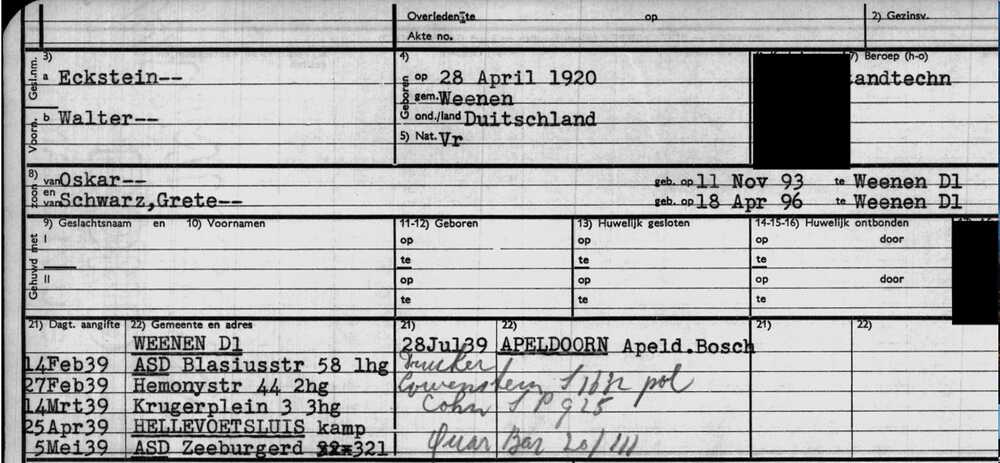 Overleden te op 2) Gezinsv.
Akte no.
3) Gesl.nm. a Eckstein-- 4) Geboren op 28 April 1920 7) Beroep (h-o) andtechn
gem. Weenen
Voorn. b Walter-- ond./land Duitschland
5) Nat. Vr
8) zoon van Oskar-- geb. op 11 Nov 93 te Weenen Dl
en van Schwarz,Grete-- geb. op 18 Apr 96 te Weenen Dl
9) Geslachtsnaam en 10) Voornamen 11-12) Geboren 13) Huwelijk gesloten 14-15-16) Huwelijk ontbonden
Gehuwd met I op op op door
te te te
II op op op door
te te te
21) Dagt. aangifte 22) Gemeente en adres 21) 22) 21) 22)
WEENEN Dl 28Jul39 APELDOORN Apeld.Bosch
14Feb39 ASD Blasiusstr 58 1hg Drucker
27Feb39 Hemonystr 44 2hg Lowenstein pol
14Mrt39 Krugerplein 3 3hg Cohn
25Apr39 HELLEVOETSLUIS kamp
5Mei39 ASD Zeeburgerd 321 Quar Bar 20/III